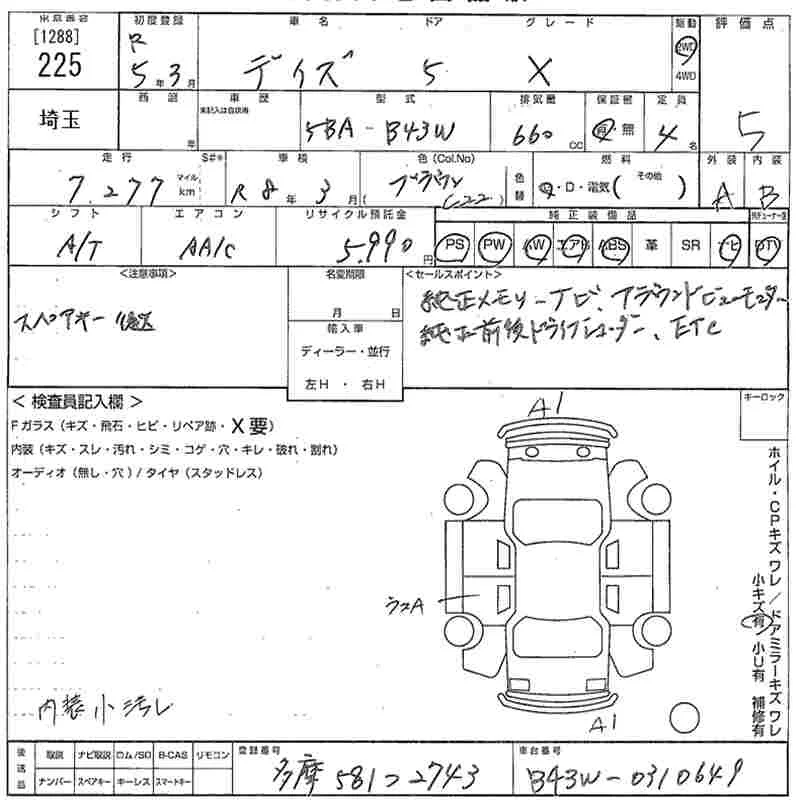 東京番号 初度登録 車名 ドア グレード 駆動 評価点
[1288] R 2WD
225 5年3月 デイズ 5 X 4WD
西暦 車歴 型式 排気量 保証書 定員
埼玉 年 未記入は自家用 5BA-B43W 660cc 有・無 4名 5
走行 S#* 車検 色(Col.No) 燃料 外装 内装
7,277 マイル km R8年3月 ブラウン (C22) 色替 G・D・電気( その他 ) A B
シフト エアコン リサイクル預託金 純正装備品
A/T AA/C 5,990円 PS PW AW エアB ABS 革 SR ナビ DTV
<注意事項> 名変期限 <セールスポイント>
スペアキー後送 月 日 純正メモリーナビ、アラウンドビューモニター
輸入車 純正前後ドライブレコーダー、ETC
ディーラー・並行
左H・右H
< 検査員記入欄 > A1 キーロック
Fガラス(キズ・飛石・ヒビ・リペア跡・X要)
内装(キズ・スレ・汚れ・シミ・コゲ・穴・キレ・破れ・割れ)
オーディオ(無し・穴)/タイヤ(スタッドレス)
ホイル・CPキズ ワレ / ドアミラーキズ ワレ
小キズ有 小U有 補修有
ウスA
内装小汚レ A1
後送品 取説 ナビ取説 ロム/SD B-CAS リモコン 登録番号 車台番号
ナンバー スペアキー キーレス スマートキー 多摩 581つ2743 B43W-0310649